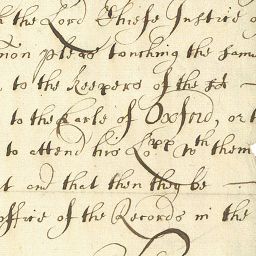 the Lord Chiefe Justice o
mon pleas touching the same
to the Keepers of the sd
to the Earle of Oxford, or t
to attend his Lopp wth them
t and that then they be
office of the Records in the